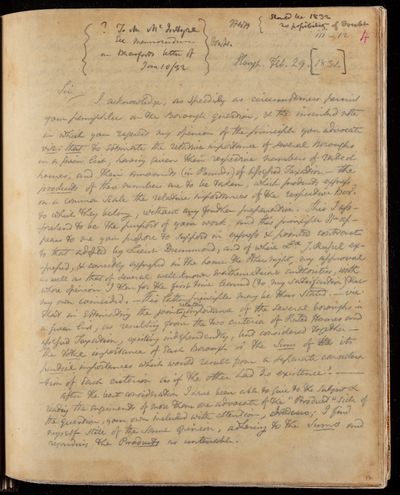 ? To Mr McIntyre
See Memorandum
on Beaufort's letter of
Jan 10/32
London
Should be 1832
no possibility of doubt
III - 12
Slough. Feb. 29. [1831.]
Sir
I acknowledge, as speedily as circumstances permit
your pamphlet on the Borough question, & the inclosed note
in which you request my opinion of the principle you advocate
viz: that to estimate the relative importance of several Boroughs
in a given list, having given their respective numbers of rated
houses, and their amounts (in Pounds) of assessed Taxation — the
products of these numbers are to be taken, which products express
on a common scale the relative importances of the respective Bor:s
to which they belong, without any further preparation. This I app-
rehend to be the purport of your work and this principle it ap-
pears to me you propose to support in express & pointed contrast
to that adopted by Lieut Drummond, and of which I had ex-
pressed, & correctly expressed in the house the other night, my approval
as well as that of several well known mathematical authorities, with
whose opinion I then for the first time learned (to my satisfaction) that
my own coincided. — This latter principle may be thus stated — viz
that in estimating the relative importance of the several boroughs in
a given list, as resulting from the two criteria of Rated Houses and
assessed Taxation, existing independently, and considered together —
the total importance of each Borough is the Sum of the
importances which would result from a separate considera-
tion of each criterion as if the other had no existence. —
After the best consideration I have been able to give to the subject &
reading the arguments of more than one advocate of the "Product" side of
the question, your own included with attention, I find
myself still of the same opinion, adhering to the Sums and
regarding the Products as untenable.